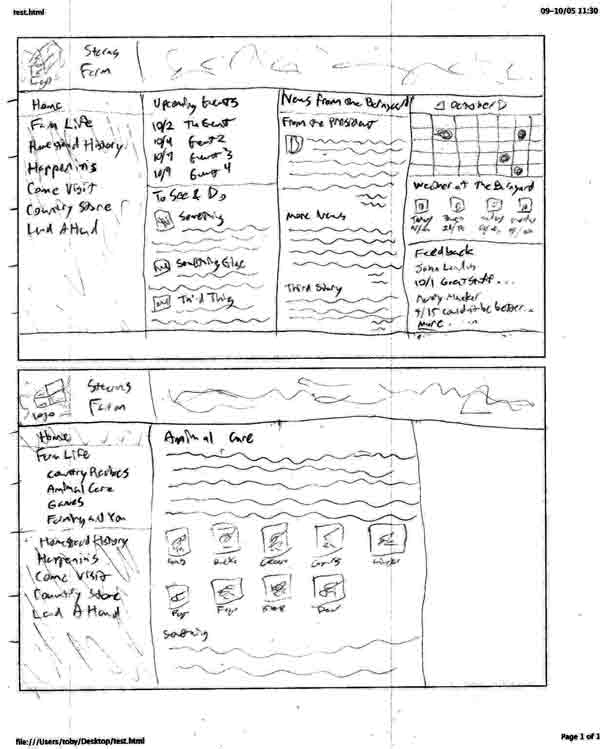 test.html
09-10/05 11:30
Logo
Sterns
Farm
Home
Farm Life
Homestead History
Happenings
Come Visit
Country Store
Lend A Hand
Upcoming Events
10/2
10/4 Event 2
10/7 Event 3
10/9 Event 4
To See & Do
Something
Something Else
Third Thing
News from the Barnyard
From the President
More News
Third Story
October
Weather at The Barnyard
Today
Feedback
John
10/1 Great Stuff...
9/15 could be better...
More...
Logo
Sterns
Farm
Home
Farm Life
Country Recipes
Animal Care
Games
Farming and You
Homestead History
Happenings
Come Visit
Country Store
Lend A Hand
Animal Care
Ducks
Pigs
Something
file:///Users/toby/Desktop/test.html
Page 1 of 1